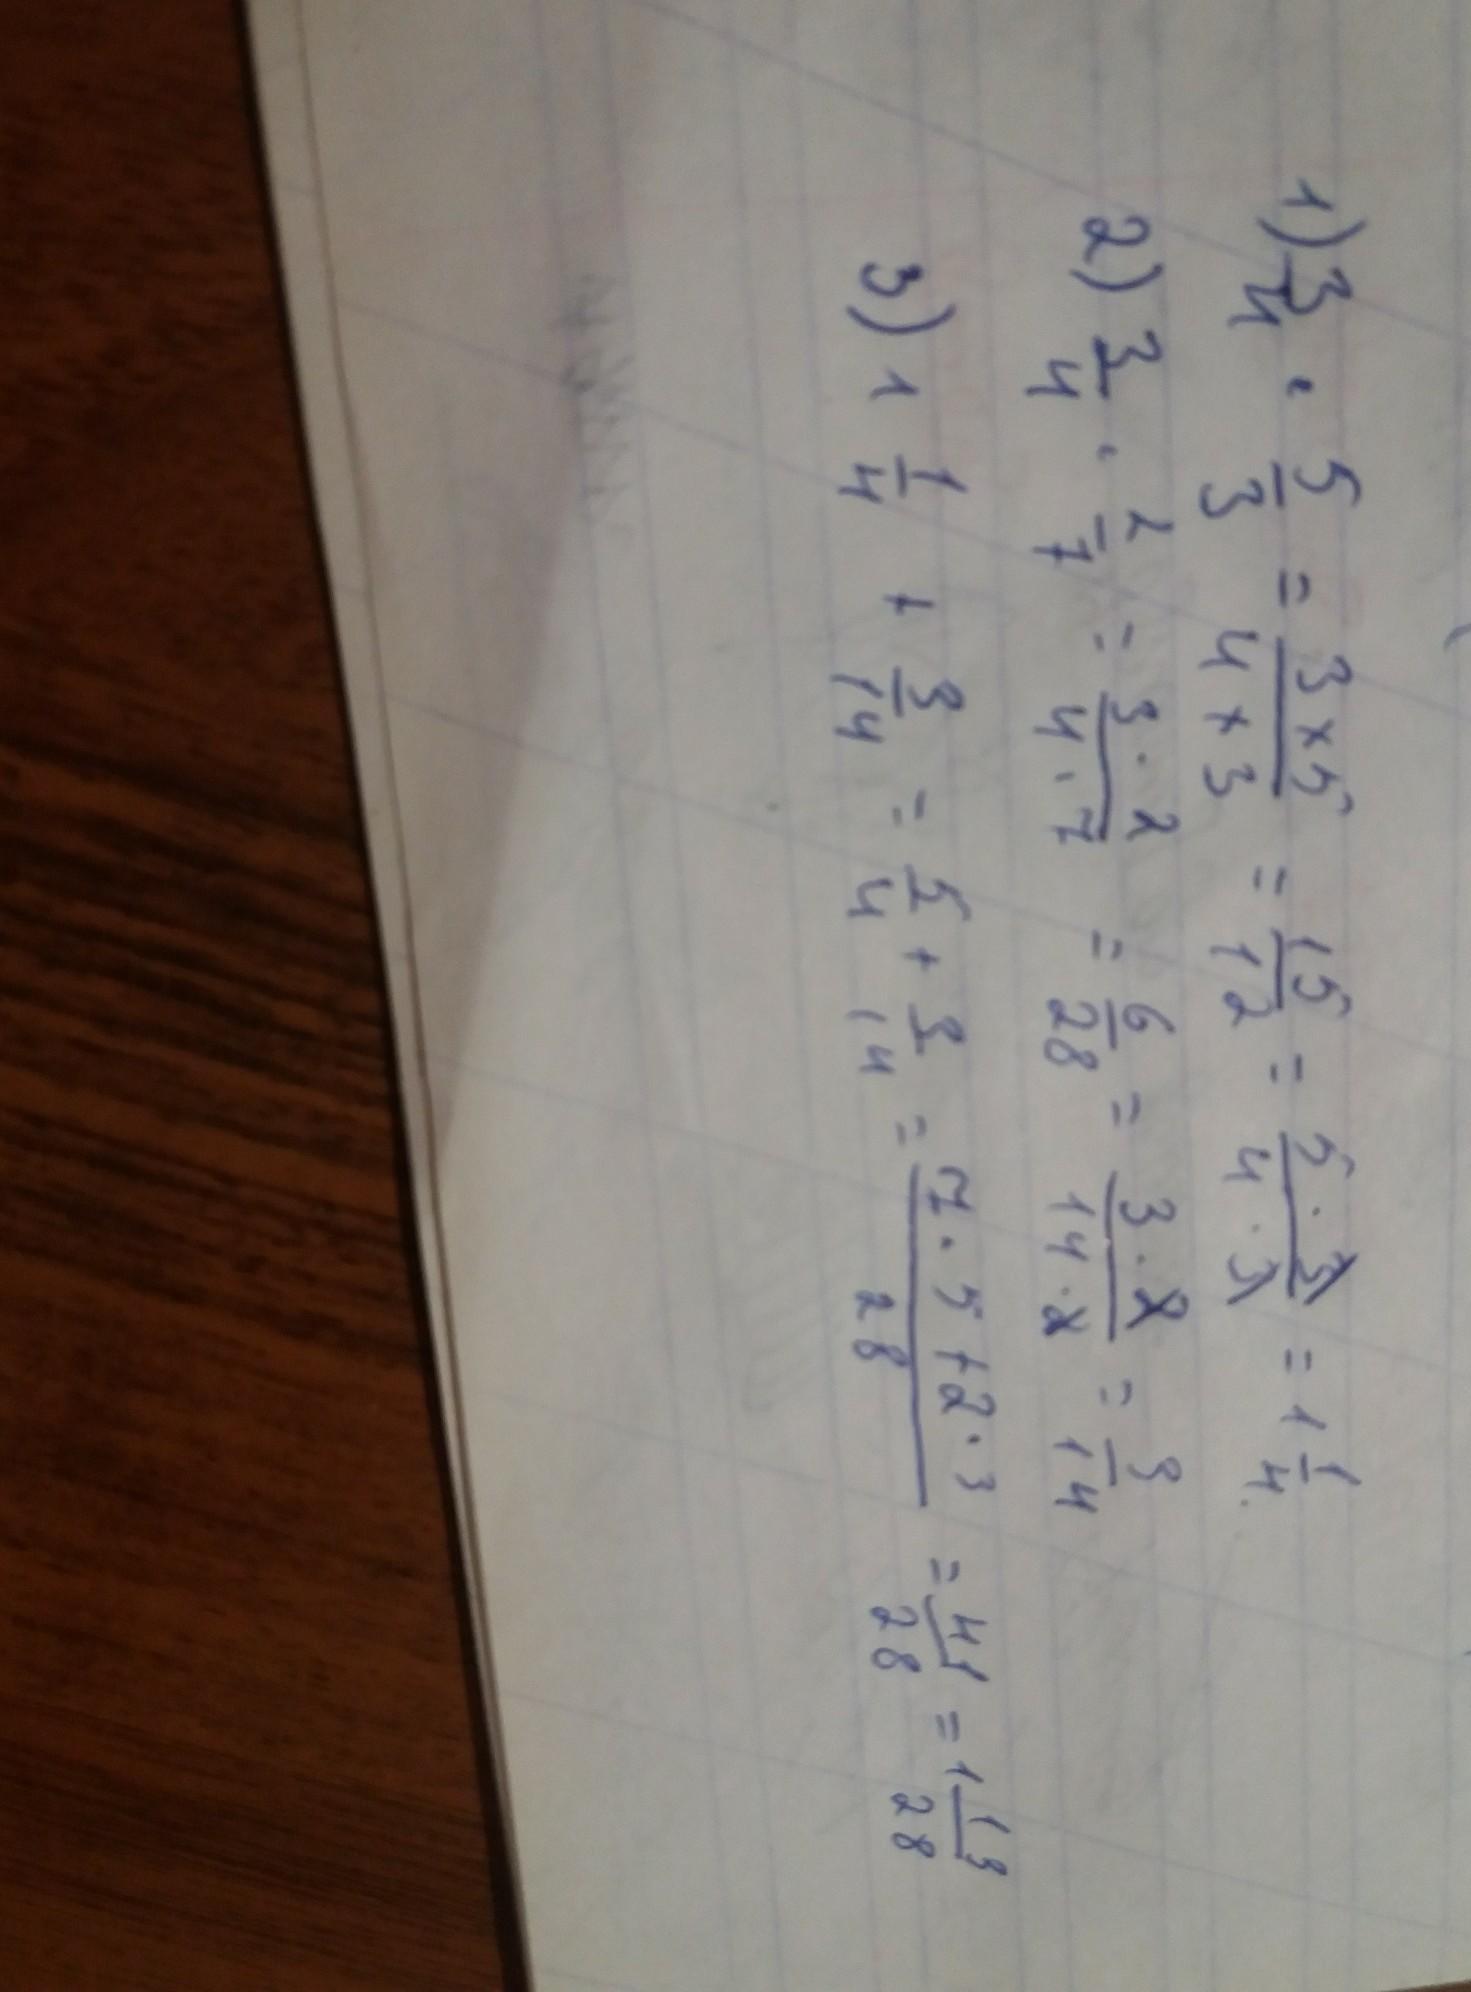 1) 3/4 · 5/3 = 3×5/4×3 = 15/12 = 5·3/4·3 = 1 1/4.
2) 3/4 · 2/7 = 3·2/4·7 = 6/28 = 3·2/14·2 = 3/14
3) 1 1/4 + 3/14 = 5/4 + 3/14 = 7·5+2·3/28 = 41/28 = 1 13/28